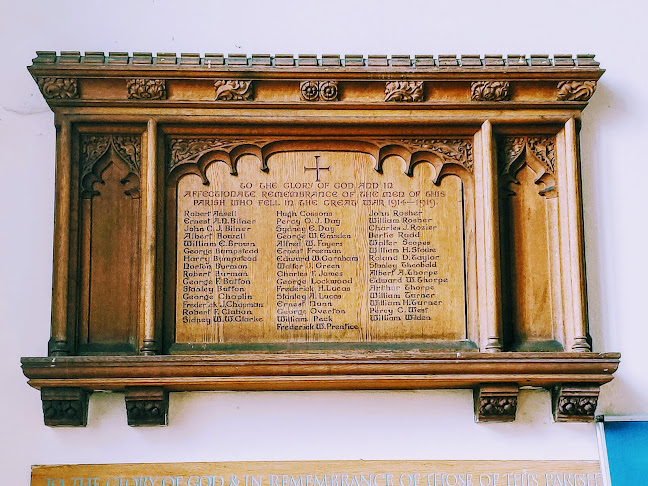 TO THE GLORY OF GOD AND IN
AFFECTIONATE REMEMBRANCE OF THE MEN OF THIS
PARISH WHO FELL IN THE GREAT WAR 1914–1919.
Robert Absell
Ernest A.D. Bilner
John C.J. Bilner
Albert Boswell
William E. Brown
George Bumpstead
Harry Bumpstead
Horton Burman
Robert Burman
George F. Button
Stanley Button
George Chaplin
Frederick J. Chapman
Robert F. Claban
Sidney W.W. Clarke
Hugh Cousons
Percy O.J. Day
Sydney E. Day
George W. Emsden
Alfred W. Fayers
Ernest Freeman
Edward W. Garnham
Walter J. Green
Charles F. James
George Lockwood
Frederick H. Lucas
Stanley A. Lucas
Ernest Nunn
George Overton
William Peck
Frederick W. Prentice
John Rosher
William Rosher
Charles J. Rozier
Bertie Rudd
Walter Scopes
William H. Stowe
Roland D. Taylor
Stanley Theobald
Albert A. Thorpe
Edward W. Thorpe
Arthur Thorpe
William Turner
William H. Turner
Percy C. West
William Wilden
TO THE GLORY OF GOD & IN REMEMBRANCE OF THOSE OF THIS PARISH